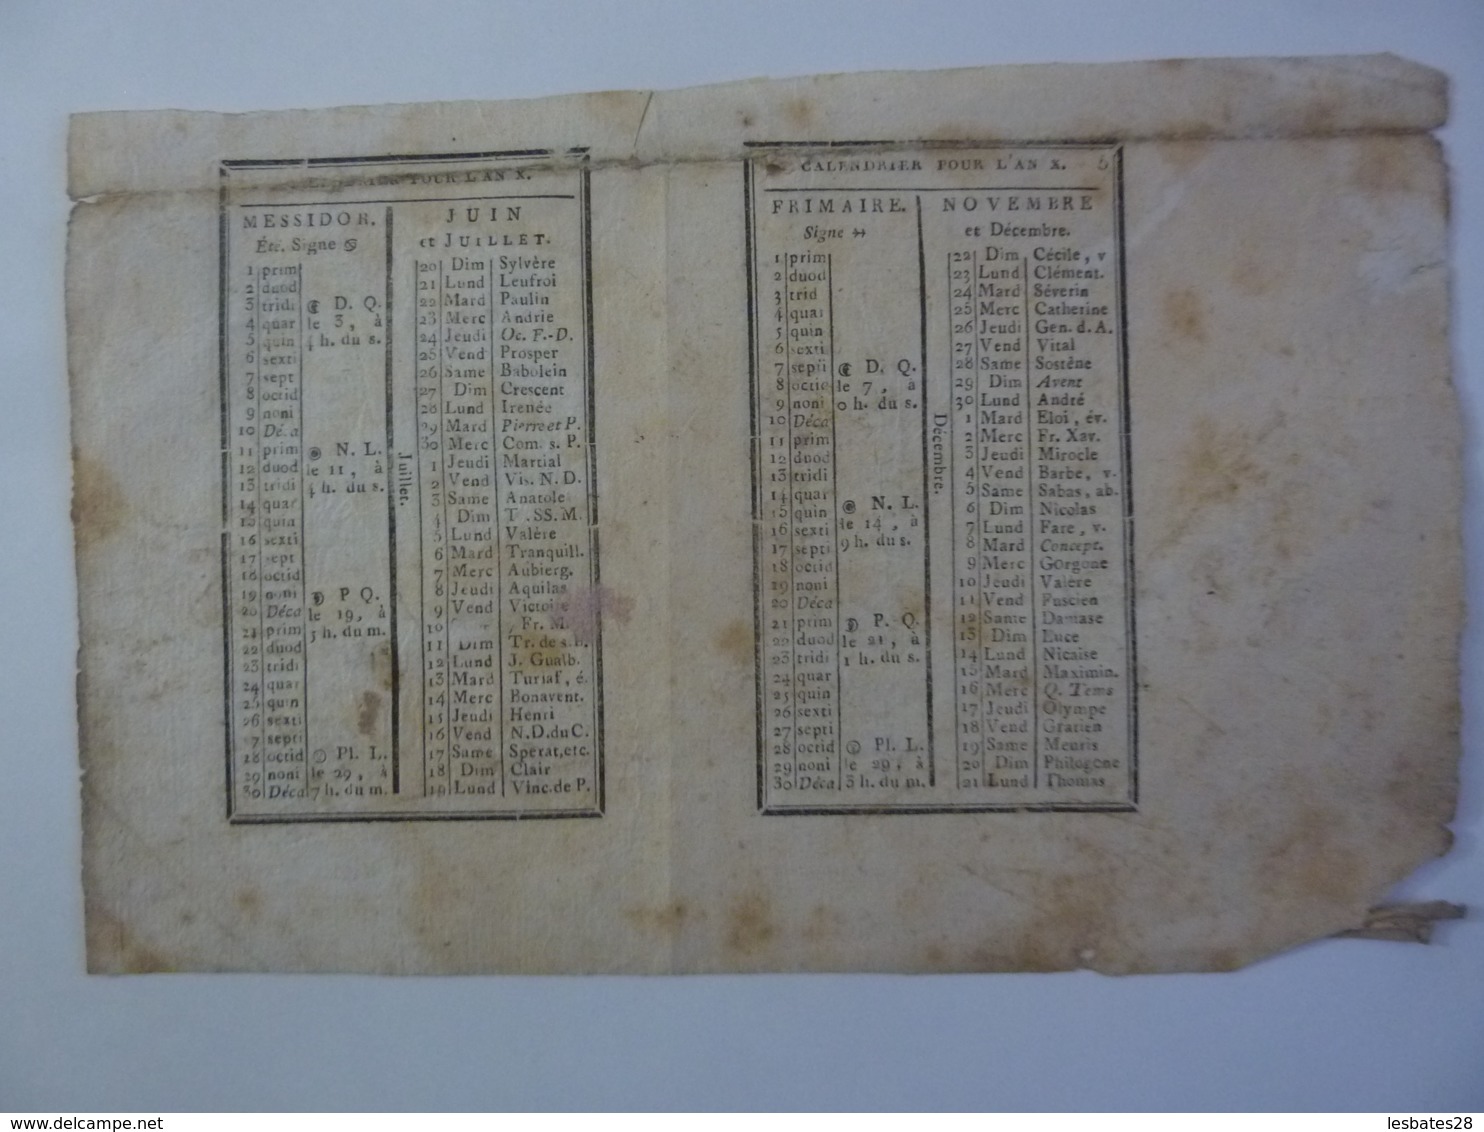 CALENDRIER POUR L'AN X.
MESSIDOR. JUIN
Été. Signe ♋ et JUILLET.
1 prim 20 Dim Sylvère
2 duod 21 Lund Leufroi
3 tridi D. Q. 22 Mard Paulin
4 quar le 3, à 23 Merc Andrie
5 quin h. du s. 24 Jeudi Oc. F.-D.
6 sexti 25 Vend Prosper
7 sept 26 Same Babolein
8 octid 27 Dim Crescent
9 noni 28 Lund Irenée
10 Déca 29 Mard Pierre et P.
11 prim N. L. 30 Merc Com. s. P.
12 duod le 11, à 1 Jeudi Martial
13 tridi h. du s. 2 Vend Vis. N. D.
14 quar 3 Same Anatole
15 quin 4 Dim T. SS. M.
16 sexti 5 Lund Valère
17 sept 6 Mard Tranquill.
18 octid 7 Merc Aubierg.
19 noni P Q. 8 Jeudi Aquilas
20 Déca le 19, à 9 Vend Victoire
21 prim 3 h. du m. 10 Fr. M.
22 duod 11 Dim Tr. de s. B.
23 tridi 12 Lund J. Gualb.
24 quar 13 Mard Turiaf, é.
25 quin 14 Merc Bonavent.
26 sexti 15 Jeudi Henri
27 septi 16 Vend N. D. du C.
28 octid Pl. L. 17 Same Sperat, etc.
29 noni le 29, à 18 Dim Clair
30 Déca 7 h. du m. 19 Lund Vinc. de P.
Juillet.
CALENDRIER POUR L'AN X. 5
FRIMAIRE. NOVEMBRE
Signe ➳ et Décembre.
1 prim 22 Dim Cécile, v
2 duod 23 Lund Clément.
3 trid 24 Mard Séverin
4 quar 25 Merc Catherine
5 quin 26 Jeudi Gen. d. A.
6 sexti 27 Vend Vital
7 septi D. Q. 28 Same Sostène
8 octid le 7, à 29 Dim Avent
9 noni 0 h. du s. 30 Lund André
10 Déca 1 Mard Eloi, év.
11 prim 2 Merc Fr. Xav.
12 duod 3 Jeudi Mirocle
13 tridi 4 Vend Barbe, v.
14 quar N. L. 5 Same Sabas, ab.
15 quin le 14, à 6 Dim Nicolas
16 sexti 9 h. du s. 7 Lund Fare, v.
17 septi 8 Mard Concept.
18 octid 9 Merc Gorgone
19 noni 10 Jeudi Valère
20 Déca 11 Vend Fuscien
21 prim P. Q. 12 Same Damase
22 duod le 21, à 13 Dim Luce
23 tridi 1 h. du s. 14 Lund Nicaise
24 quar 15 Mard Maximin.
25 quin 16 Merc Q. Tems
26 sexti 17 Jeudi Olympe
27 septi 18 Vend Gratien
28 octid Pl. L. 19 Same Meuris
29 noni le 29, à 20 Dim Philogone
30 Déca 3 h. du m. 21 Lund Thomas
Décembre.
www.delcampe.net lesbates28